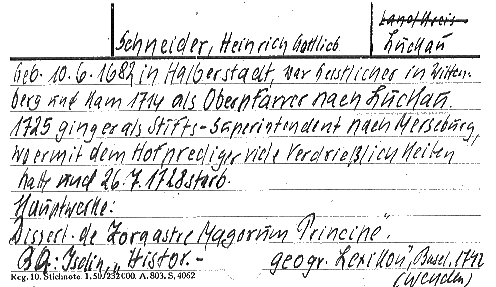 Schneider, Heinrich Gottlib
Landkreis
Luckau
Geb. 10.6.1682 in Halberstadt, war Geistlicher in Witten-
berg und kam 1714 als Oberpfarrer nach Luckau.
1725 ging er als Stifts-Superintendent nach Merseburg,
wo er mit dem Hofprediger viele Verdrießlichkeiten
hatte und 26.7.1728 starb.
Hauptwerke:
Dissert. de Zoroastre Magorum Principe".
BQ: Iselin, „Histor.- geogr. Lexikon", Basel, 1742
(Wenden)
Reg. 10. Stichnote. 1. 50/232000. A. 803. S. 4062